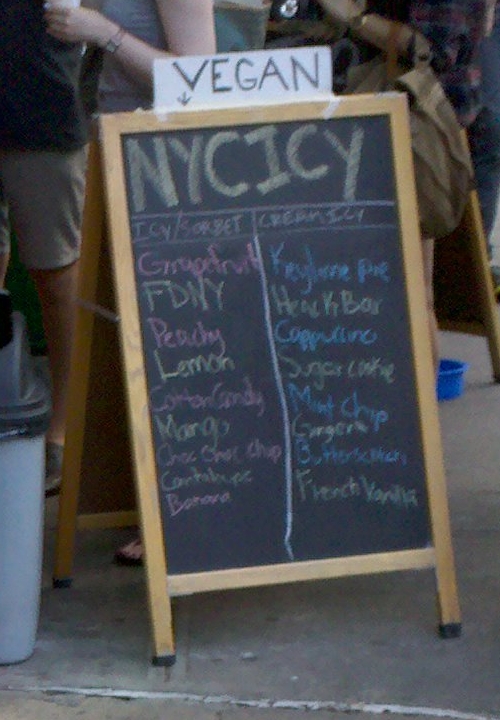 VEGAN
NYCICY
ICY/SORBET
Grapefruit
FDNY
Peachy
Lemon
Cotton Candy
Mango
Choc Choc Chip
Cantalupe
Banana
CREAM ICY
Keylime Pie
Heath Bar
Cappuccino
Sugar cookie
Mint Chip
Ginger
Butterscotch
French Vanilla